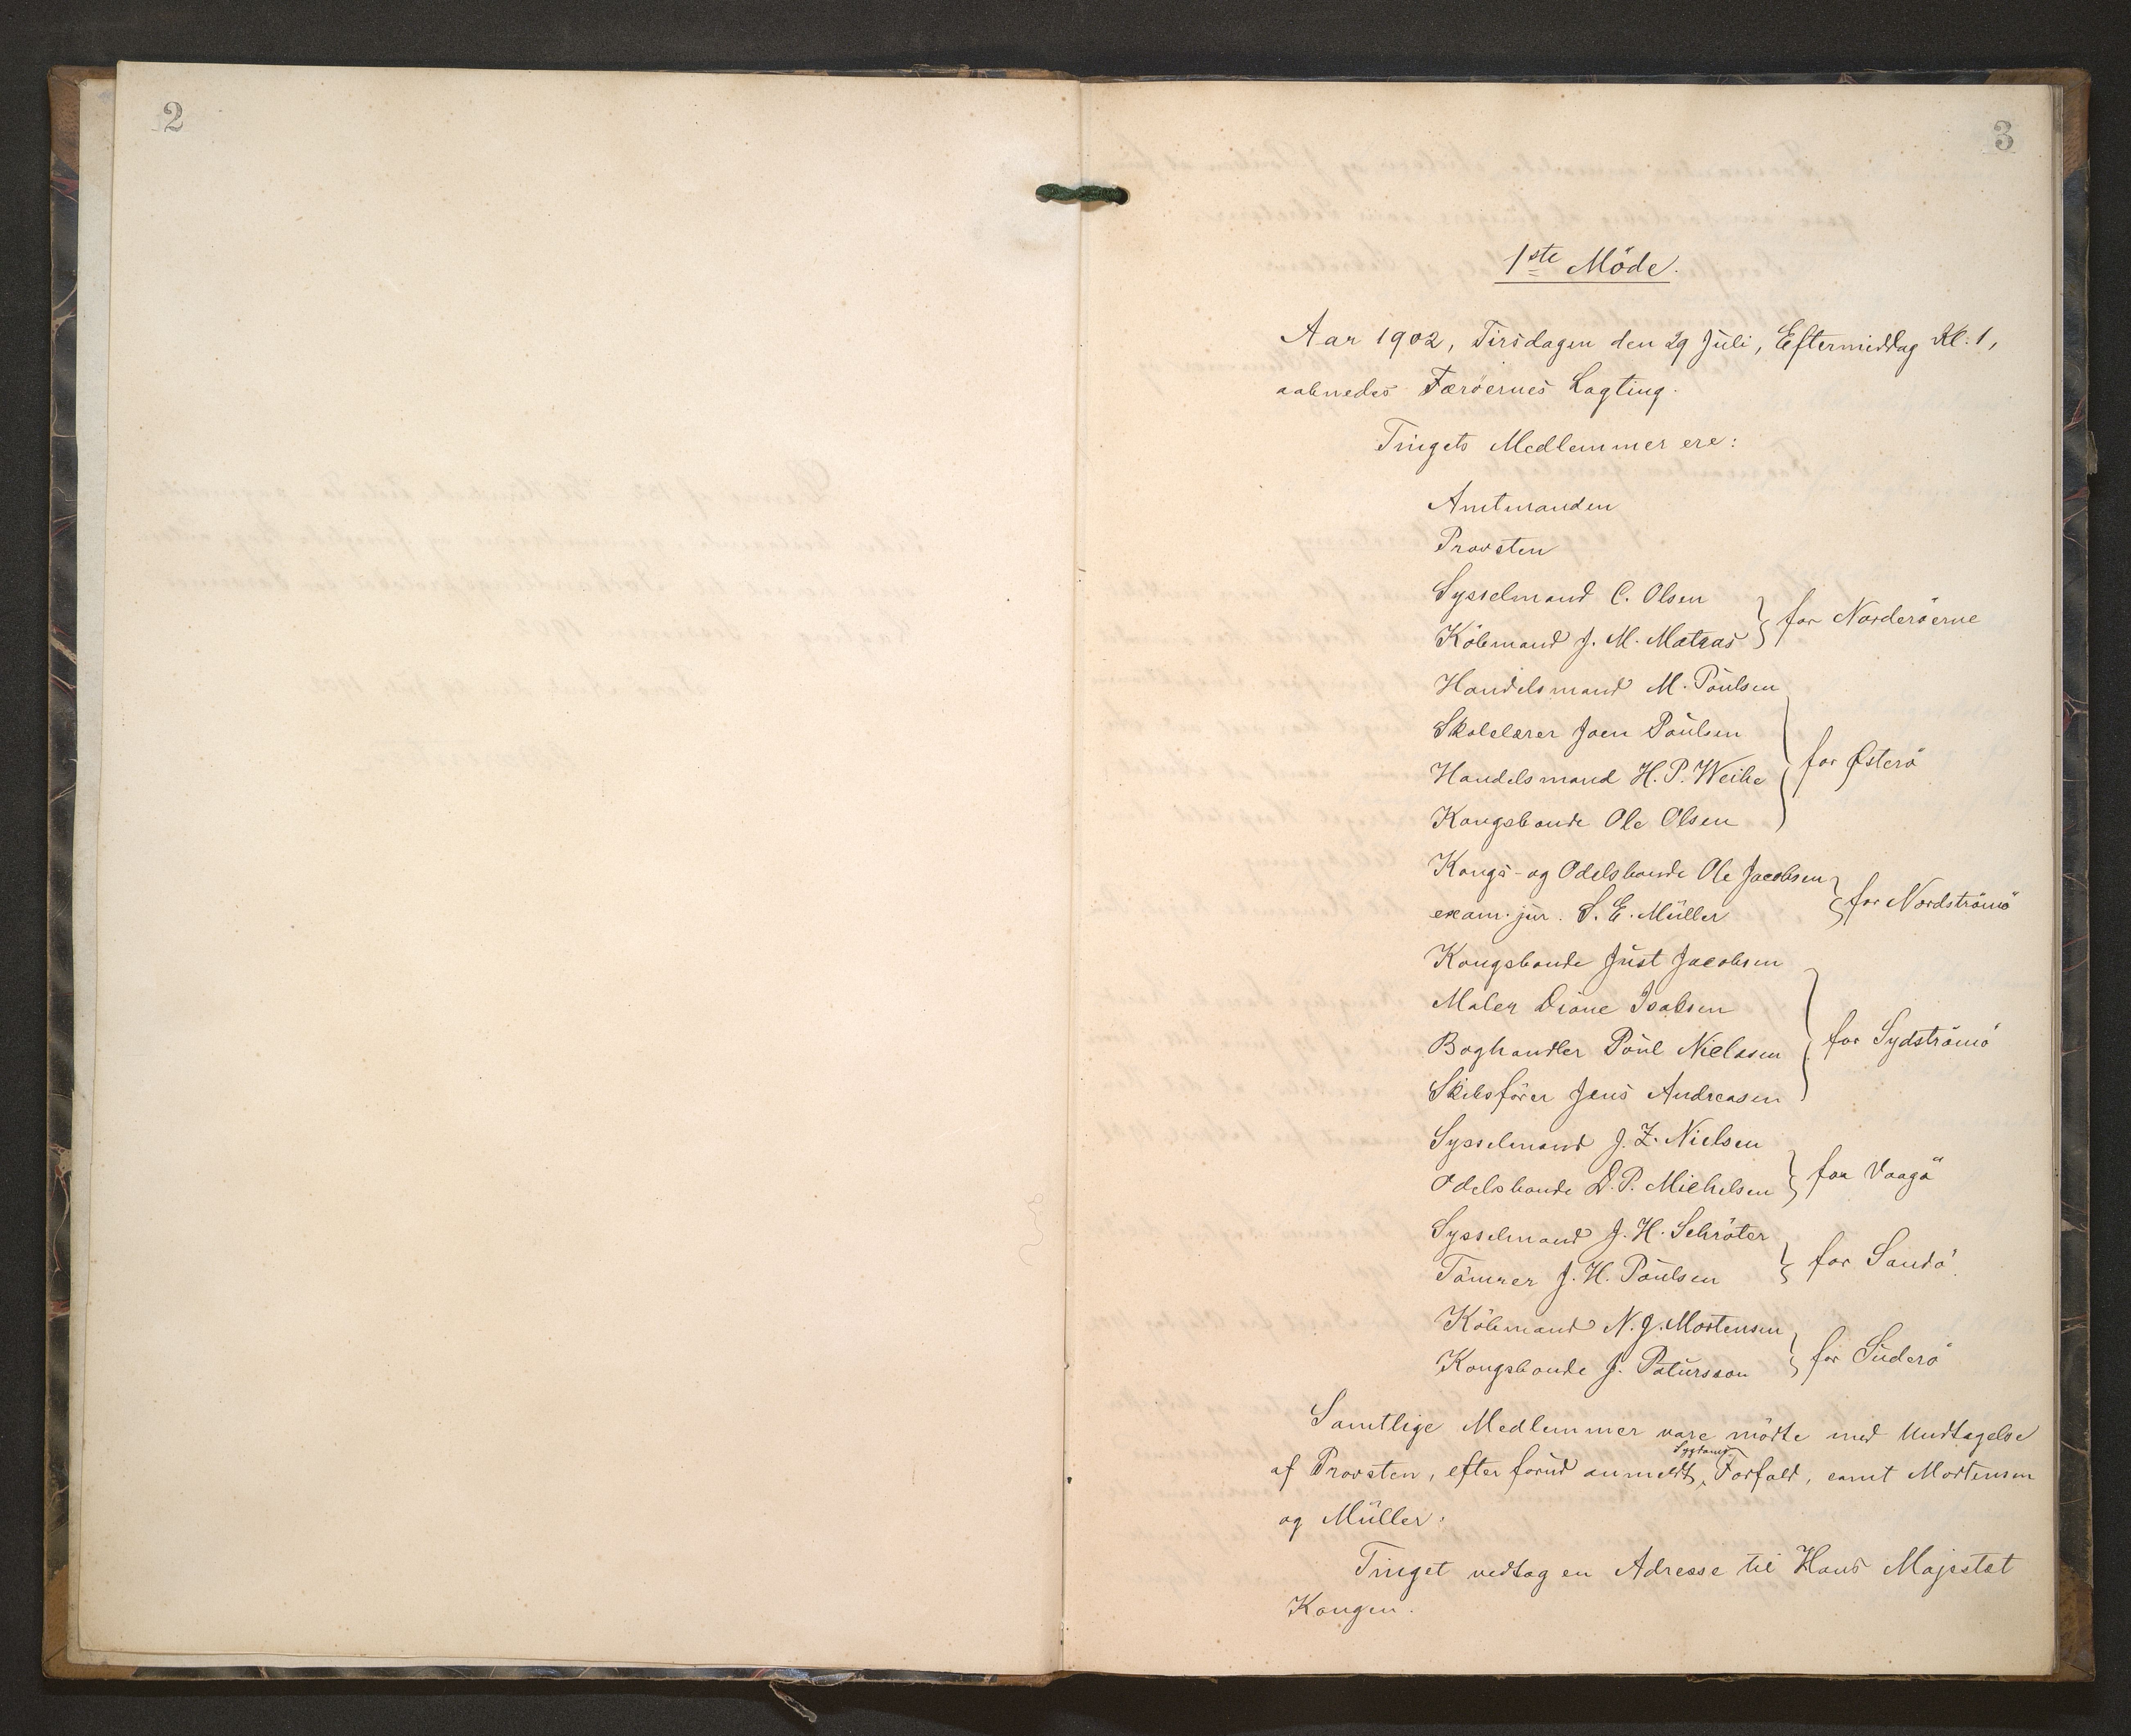 2
3
1ste Möde.
Aar 1902, Tirsdagen den 29 Juli, Eftermiddag Kl. 1,
aabnedes Færöernes Lagting.
Tingets Medlemmer ere:
Amtmanden
Provsten
Sysselmand C. Olsen
Köbmand J. M. Matras
for Norderöerne
Handelsmand M. Poulsen
Skolelærer Joen Poulsen
Handelsmand H. P. Weihe
Kongsbonde Ole Olsen
for Österö
Kongs- og Odelsbonde Ole Jacobsen
exam. jur. S. E. Müller
for Nordströmö
Kongsbonde Just Jacobsen
Maler Dione Isaksen
Boghandler Poul Nielsen
Skibsförer Jens Andreasen
for Sydströmö
Sysselmand J. Z. Nielsen
Odelsbonde D. P. Michelsen
for Vaagö
Sysselmand J. H. Schröter
Tömrer J. H. Poulsen
for Sandö
Köbmand N. J. Mortensen
Kongsbonde J. Patursson
for Suderö
Samtlige Medlemmer vare mödte med Undtagelse
af Provsten, efter forud anmeldt Sygdoms Forfald, samt Mortensen
og Müller.
Tinget vedtog en Adresse til Hans Majestæt
Kongen.